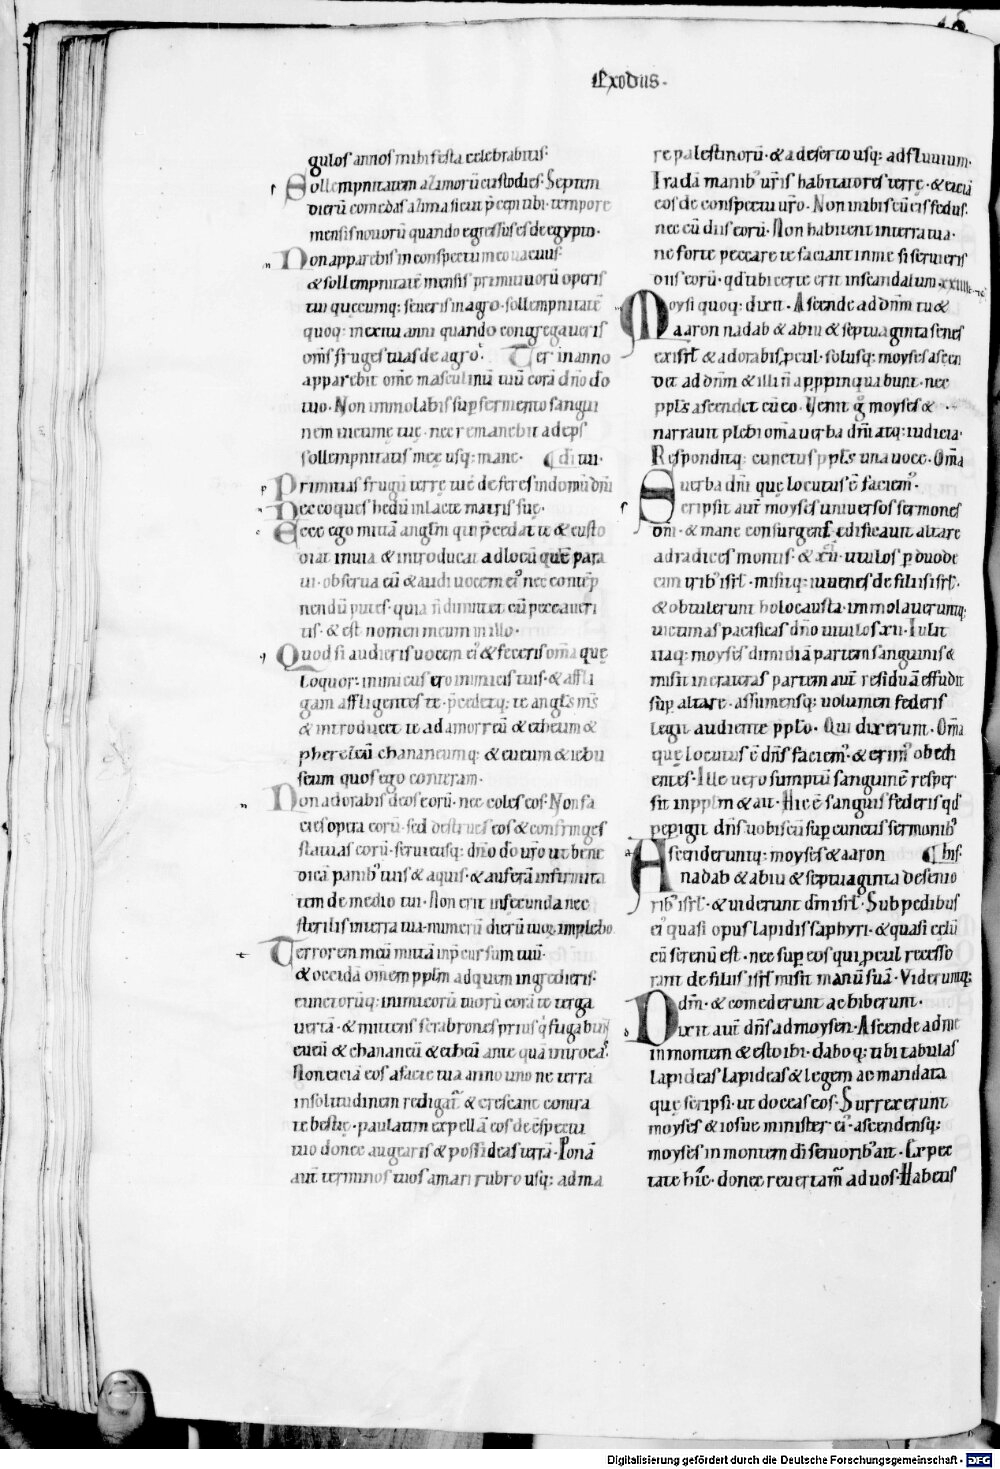 Exodus.
gulos annos mihi festa celebrabitis.
Sollempnitatem azimorū custodies. Septem
dierū comedas azima sicut p̄cepi tibi. tempore
mensis novorū quando egressus es de egypto.
Non apparebis in conspectu meo vacuus.
& sollempnitatē mensis primitivorū operis
tui quecumq: severis in agro. sollempnitatē
quoq: in exitu anni quando congregaveris
om̄s fruges tuas de agro. Ter in anno
apparebit om̄e masculinū tuū corā dn̄o dō
tuo. Non immolabis sup̄ fermento sangui
nem victime tue. nec remanebit adeps
sollempnitatis mee usq: mane.
Primitias frugū terre tue deferes in domū dn̄i
Nec coques hedū in lacte matris sue.
Ecce ego mittā angl̄m qui p̄cedat te & custo
diat in via & introducat ad locū que para
vi. observa eū & audi vocem ei' nec contēp
nendū putes. quia n̄ dimittet cū peccaveri
tis. & est nomen meum in illo.
Quod si audieris vocem ei' & feceris om̄a que
loquor: inimicus ero inimicis tuis. & affli
gam affligentes te. p̄cedetq: te angl̄s ms̄
& introducet te ad amorreū & etheum &
pherezeū chananeumq: & eveum & iebu
seum quos ego conteram.
Non adorabis deos eorū. nec coles eos. Non fa
cies opera eorū. sed destrues eos & confringes
statuas eorū. servietisq: dn̄o dō vr̄o ut bene
dicā panib' tuis & aquis. & auferā infirmita
tem de medio tui. Non erit infecunda nec
sterilis in terra tua. numerū dierū tuoꝝ implebo
Terrorem meū mittā in p̄cursum tuū.
& occidā om̄em pplm̄ ad quem ingredieris.
cunctorūq: inimicorū tuorū corā te terga
vertā. & mittens scrabrones prius q̇ fugabūt
eveū & chananeū & etheū ante quā introeas.
Non eiciā eos a facie tua anno uno ne terra
in solitudinem redigat' & crescant contra
te bestie. paulatim expellā eos de cōspectu
tuo donec augearis & possideas terrā. Ponā
aut̄ terminos tuos a mari rubro usq: ad ma
re palestinorū. & a deserto usq: ad fluvium.
Tradā manib' vr̄is habitatores terre. & eiciā
eos de conspectu vr̄o. Non inibis cū eis fedus.
nec cū diis eorū. Non habitent in terra tua.
ne forte peccare te faciant in me si servieris
diis eorū. qd̄ tibi certe erit in scandalum. xxiiii
Moysi quoq: dixit. Ascende ad dn̄m tu &
aaron nadab & abiu & septuaginta senes
ex isr̄l & adorabis p̄cul. solusq: moyses ascen
det ad dn̄m & illi n̄ app̄pinquabunt. nec
ppl̄s ascendet cū eo. Venit g̊ moyses &
narravit plebi om̄a verba dn̄i atq: iudicia.
Responditq: cunctus ppl̄s una voce. Om̄a
verba dn̄i que locutus ē faciem'.
Scripsit aut̄ moyses universos sermones
dn̄i. & mane consurgens edificavit altare
ad radices montis. & xii. titulos p duode
cim trib' isr̄l. misitq: iuvenes de filiis isr̄l.
& obtulerunt holocausta. immolaveruntq:
victimas pacificas dn̄o vitulos xii. Tulit
itaq: moyses dimidiā partem sanguinis &
misit in crateras partem aut̄ residuā effudit
sup̄ altare. assumensq: volumen federis
legit audiente pplō. Qui dixerunt. Om̄a
que locutus ē dn̄s faciem' & erim' obedi
entes. Ille vero sumptū sanguinē resper
sit in pplm̄ & ait. Hic ē sanguis federis qd̄
pepigit dn̄s vobiscū sup̄ cunctis sermonib'
his.
Ascenderuntq: moyses & aaron
nadab & abiu & septuaginta de senio
rib' isr̄l. & viderunt dm̄ isr̄l. Sub pedibus
ei' quasi opus lapidis saphyri. & quasi celū
cū serenū est. nec sup̄ eos qui p̄cul recesse
rant de filiis isr̄l misit manū suā. Videruntq:
dm̄. & comederunt ac biberunt.
Dixit aut̄ dn̄s ad moysen. Ascende ad me
in montem & esto ibi. daboq: tibi tabulas
lapideas lapideas & legem ac mandata
que scripsi. ut doceas eos. Surrexerunt
moyses & iosue minister ei'. ascendensq:
moyses in montem di senioribus ait. Expec
tate hic. donec revertam̄ ad vos. Habetis
Digitalisierung gefördert durch die Deutsche Forschungsgemeinschaft - DFG